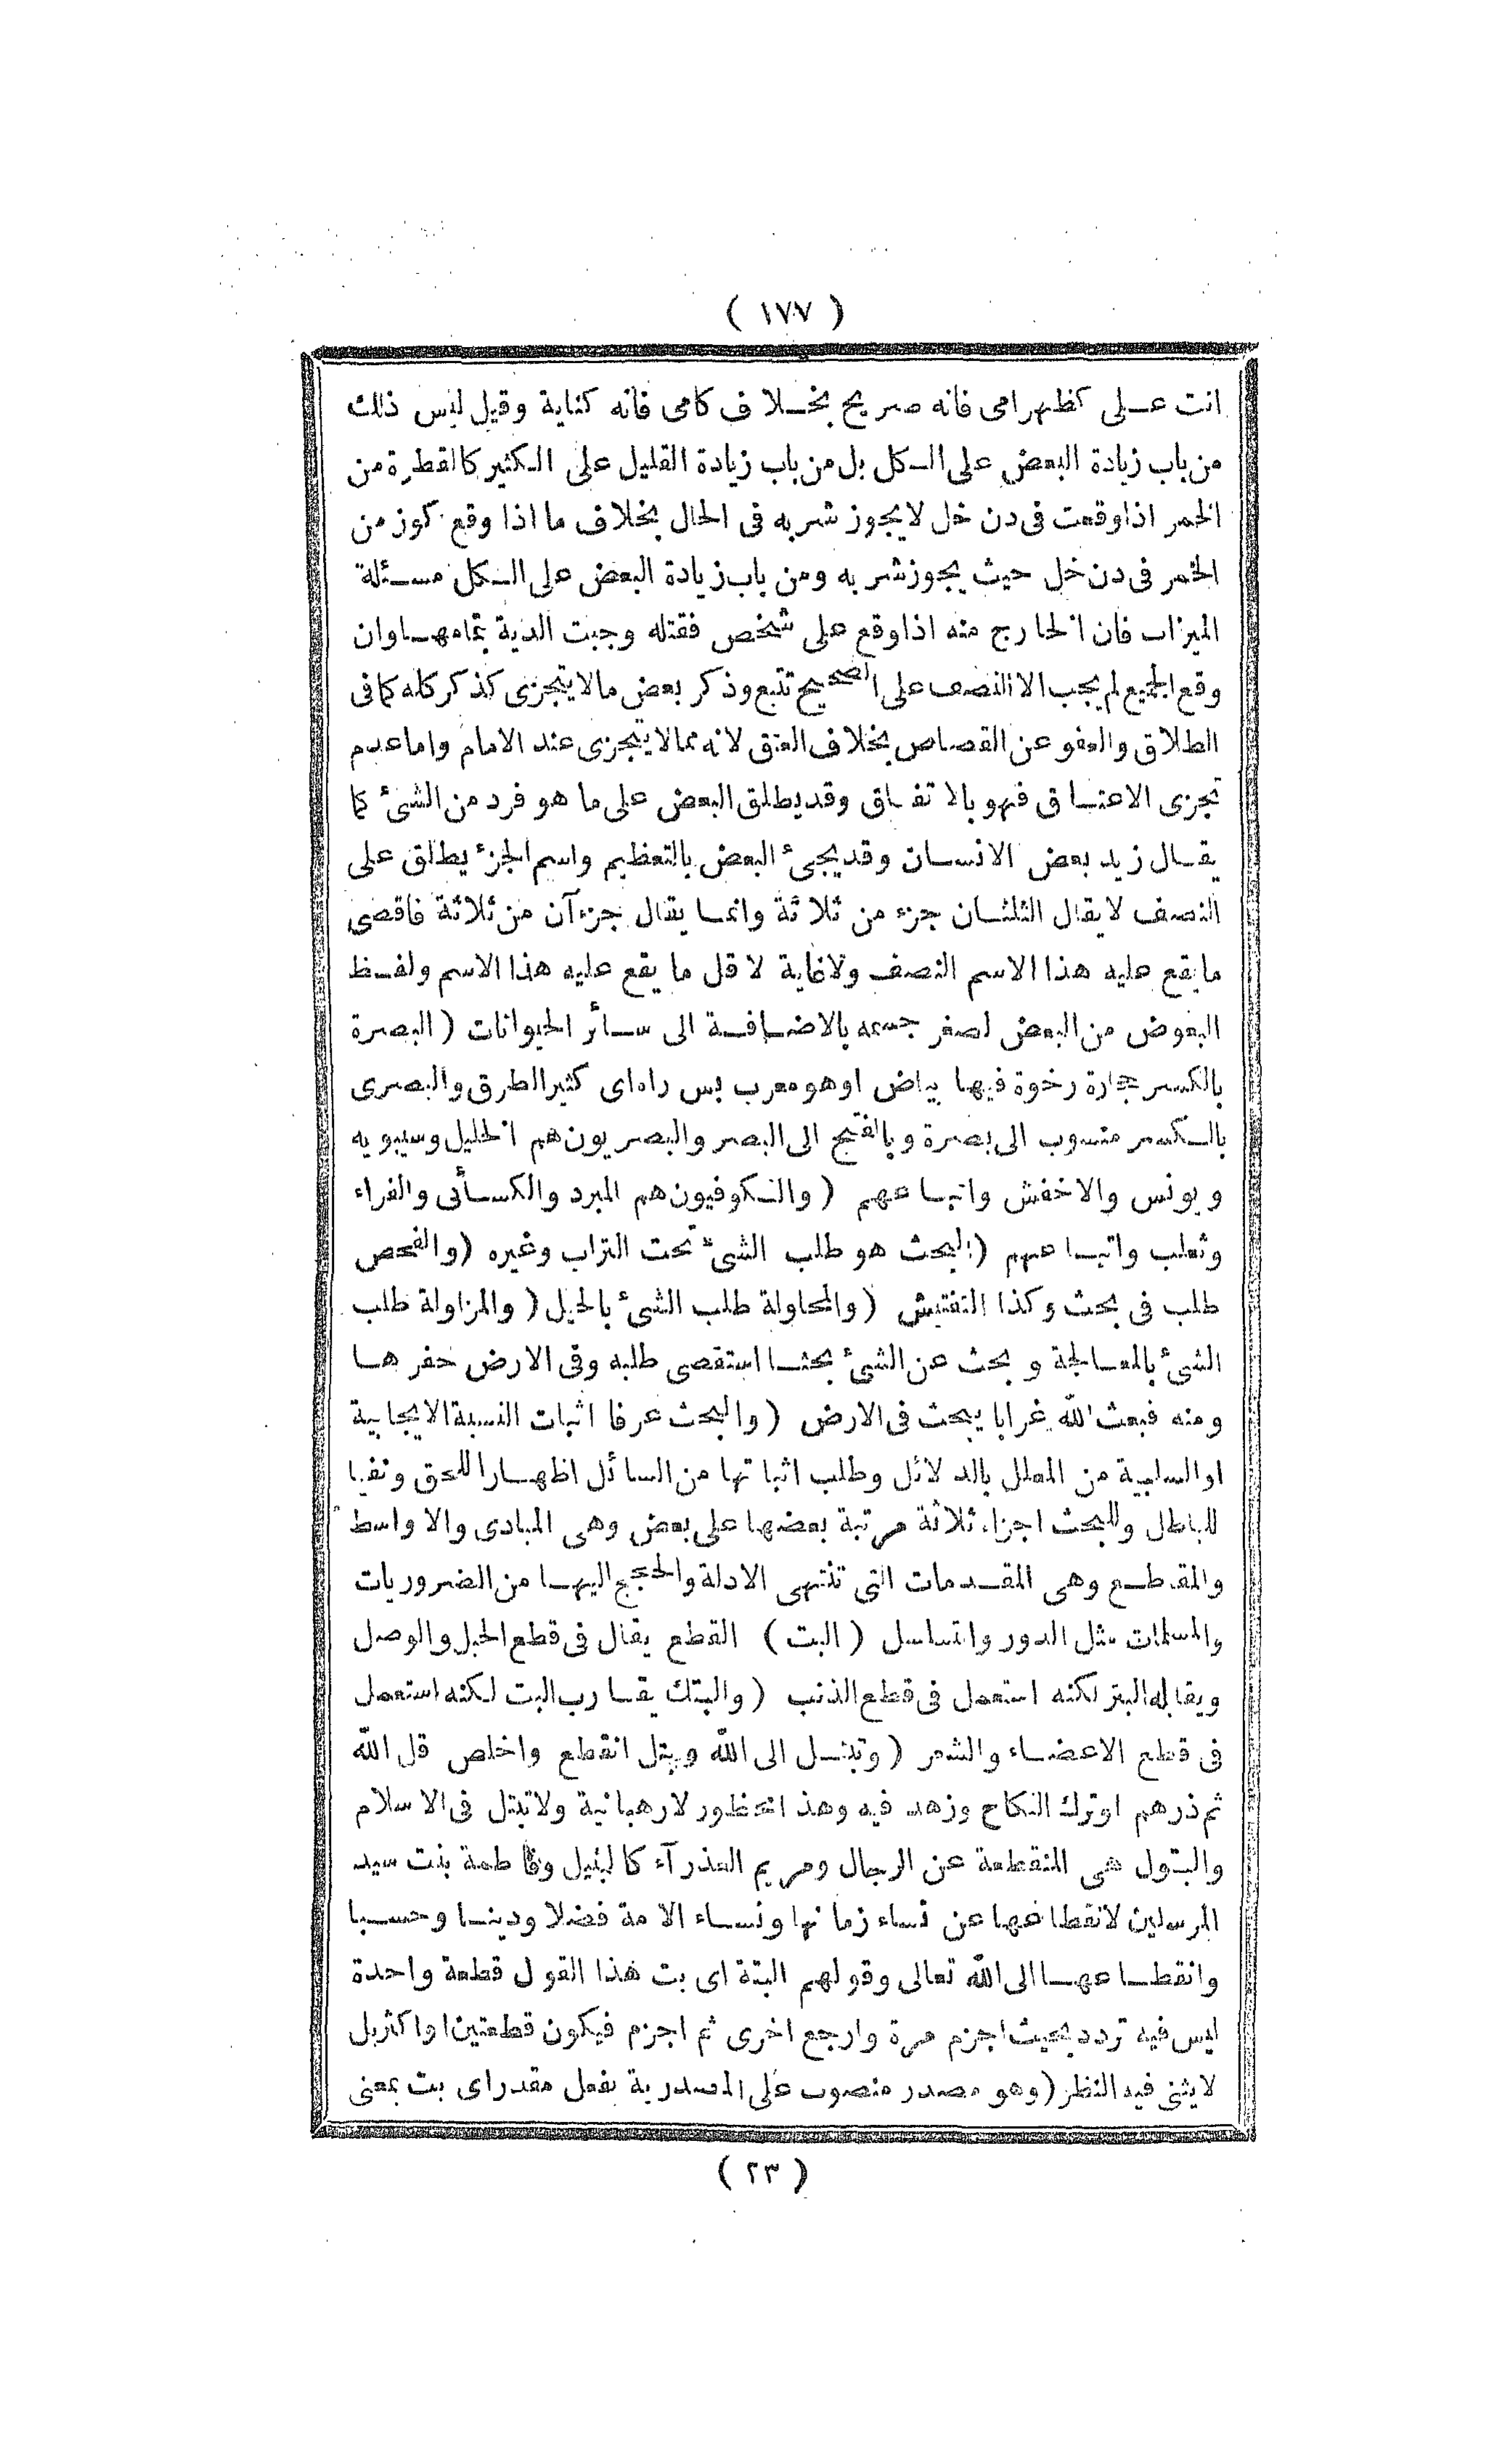 ( ١٧٧ )
انت عـلى كظهرامى فانه صريح بخـلاف كامى فانه كناية وقيل ليس ذلك
من باب زيادة البعض على الـكل بل من باب زيادة القليل على الـكثير كالقطرة من
الخمر اذا وقعت فى دن خل لايجوز شربه فى الحال بخلاف ما اذا وقع كوز من
الخمر فى دن خل حيث يجوز شربه ومن باب زيادة البعض على الـكل مسـئلة
الميزاب فان الخارج منه اذا وقع على شخص فقتله وجبت الدية بتمامهـا وان
وقع الجميع لم يجب الا النصف على الصحيح تتبع وذكر بعض مالايتجزى كذكر كله كما فى
الطلاق والعفو عن القصاص بخلاف العتق لانه ممالايتجزى عند الامام واما عدم
تجزى الاعتـاق فهو بالاتفـاق وقد يطلق البعض على ما هو فرد من الشئ كما
يقـال زيد بعض الانسـان وقد يجئ البعض بالتعظيم واسم الجزء يطلق على
النصف لايقال الثلثـان جزء من ثلاثة وانمـا يقال جزءآن من ثلاثة فاقصى
مايقع عليه هذا الاسم النصف ولاغاية لاقل ما يقع عليه هذا الاسم ولفـظ
البعوض من البعض لصغر جسمه بالاضـافـة الى سـائر الحيوانات ( البصرة
بالكسر حجارة رخوة فيها بياض اوهو معرب بس راه اى كثير الطرق والبصرى
بالـكسر منسوب الى بصرة وبالفتح الى البصر والبصريون هم الخليل وسيبويه
ويونس والاخفش واتبـاعهم ( والـكوفيون هم المبرد والكسـائى والفراء
وثعلب واتبـاعهم ( البحث هو طلب الشئ تحت التراب وغيره ( والفحص
طلب فى بحث وكذا التفتيش ( والمحاولة طلب الشئ بالحيل ( والمزاولة طلب
الشئ بالمعـالجة وبحث عن الشئ بحثـا استقصى طلبه وفى الارض حفرهـا
ومنه فبعث الله غرابا يبحث فى الارض ( والبحث عرفا اثبات النسبة الايجابية
او السلبية من المعلل بالدلائل وطلب اثباتها من السائل اظهـارا للحق ونفيا
للباطل وللبحث اجزاء ثلاثة مرتبة بعضها على بعض وهى المبادى والاواسط
والمقـاطـع وهى المقـدمات التى تنتهى الادلة والحجج اليهـا من الضروريات
والمسلمات مثل الدور والتسلسل ( البت ) القطع يقال فى قطع الحبل والوصل
ويقابله البتر لكنه استعمل فى قطع الذنب ( والبتك يقـارب البت لكنه استعمل
فى قطع الاعضـاء والشعر ( وتبتـل الى الله وبتل انقطع واخلص قل الله
ثم ذرهم اوترك النكاح وزهد فيه وهذا محظور لارهبانية ولاتبتل فى الاسلام
والبتول هى المنقطعة عن الرجال ومريم العذرآء كالبتيل وفاطمة بنت سيد
المرسلين لانقطاعها عن نساء زمانها ونسـاء الامة فضلا ودينـا وحسـبا
وانقطـاعهـا الى الله تعالى وقولهم البتة اى بت هذا القول قطعة واحدة
ليس فيه تردد بحيث اجزم مرة وارجع اخرى ثم اجزم فيكون قطعتين او اكثر بل
لايثنى فيه النظر ( وهو مصدر منصوب على المصدرية بفعل مقدر اى بت بمعنى
( ٢٣ )